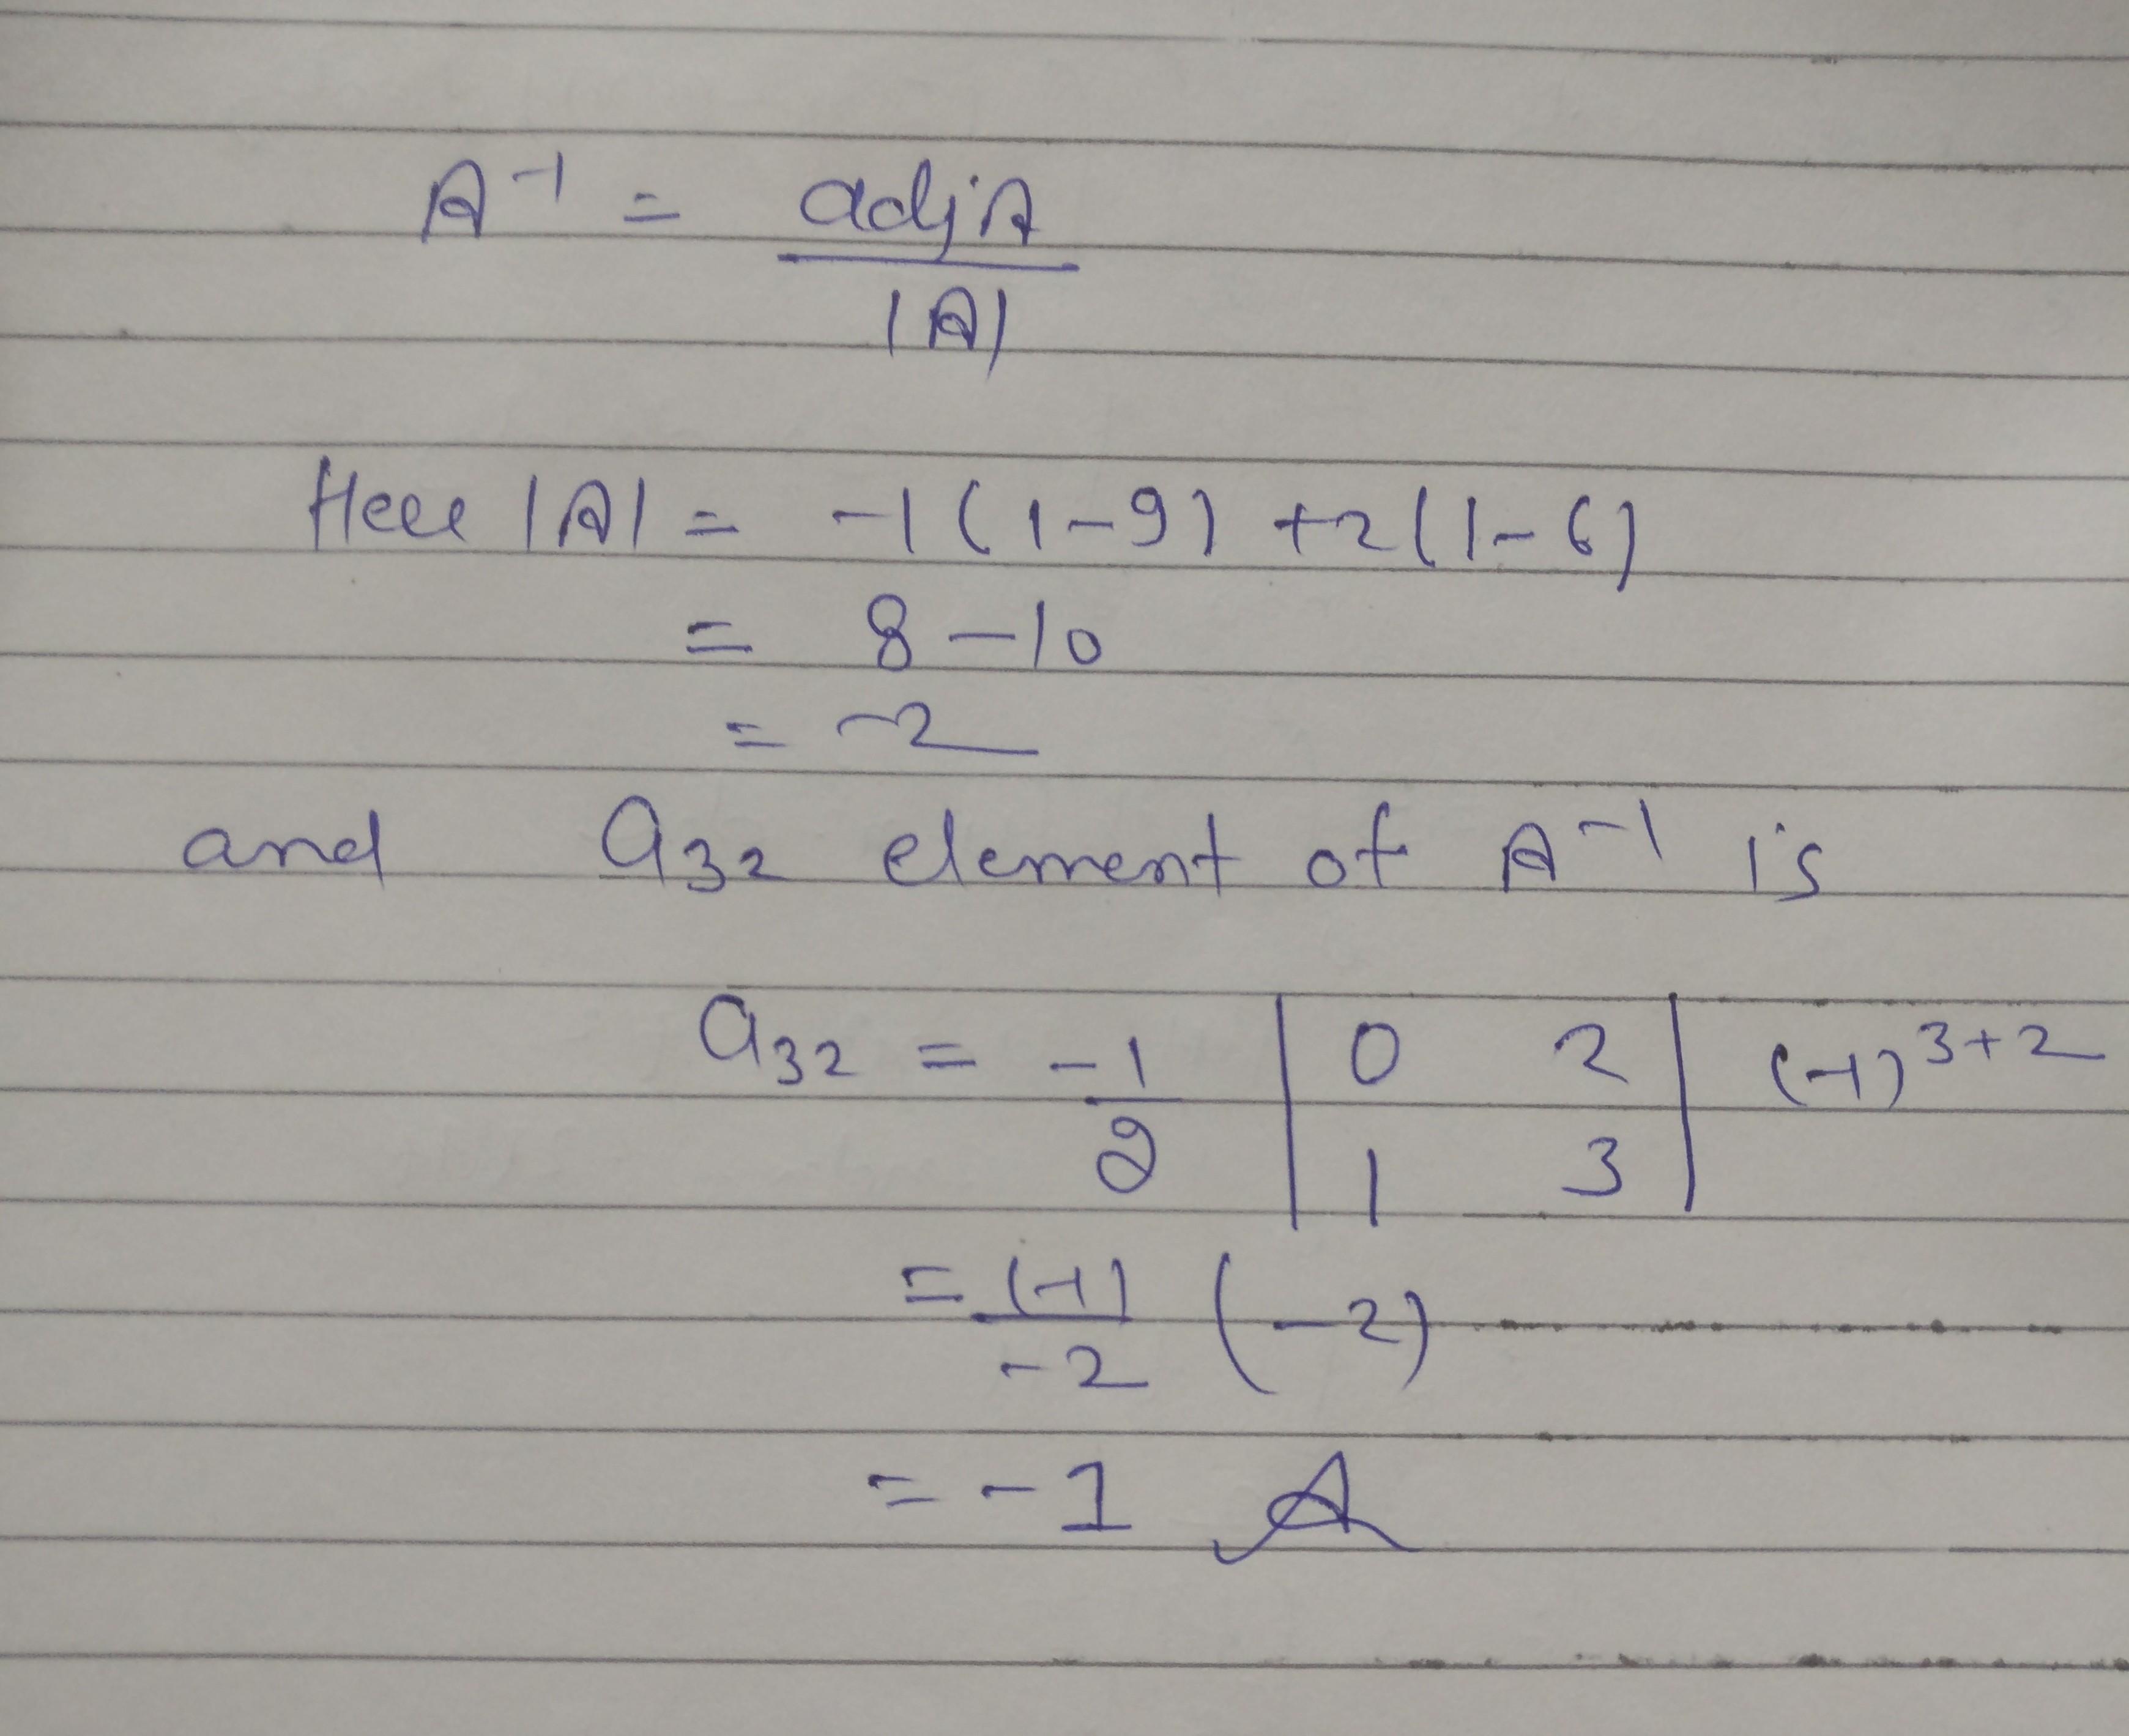 A⁻¹ = adjA / |A|
Here |A| = -1(1-9) +2(1-6)
= 8-10
= -2
and a₃₂ element of A⁻¹ is
a₃₂ = -1/2 |0 2; 1 3| (-1)³⁺²
= (-1)/-2 (-2)
= -1 A